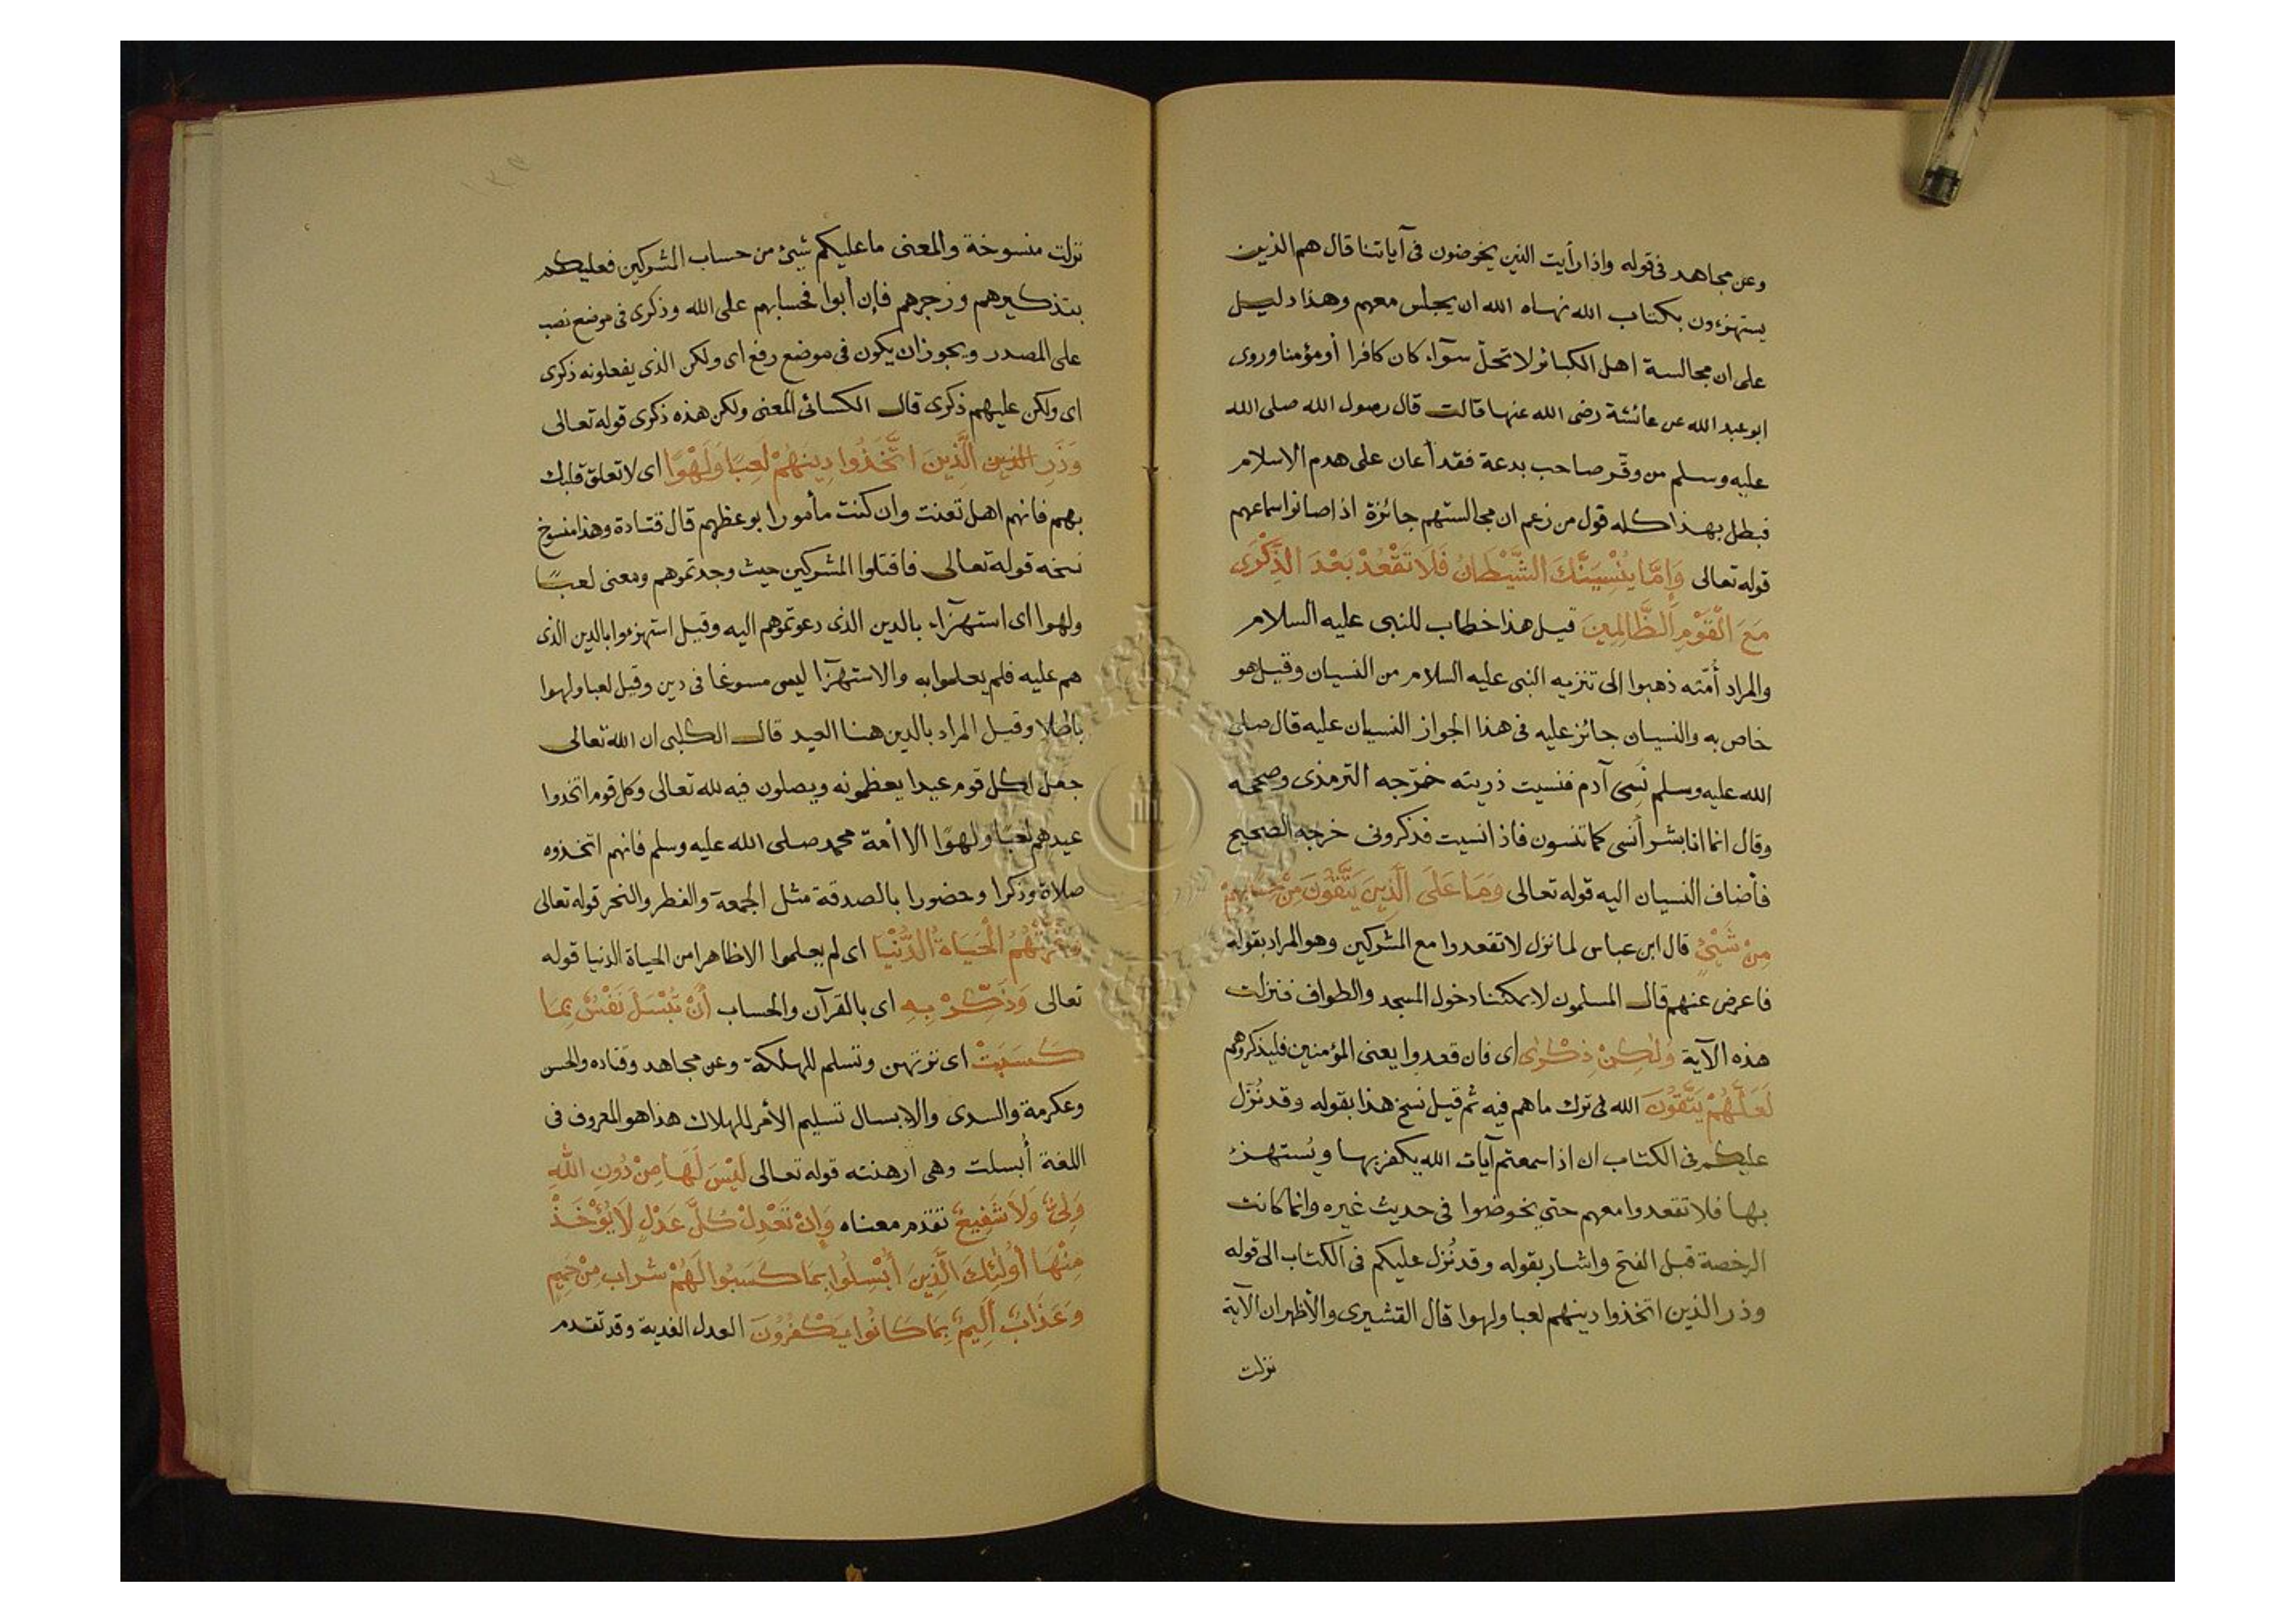 وعن مجاهد فى قوله واذا رأيت الذين يخوضون فى آياتنا قال هم الذين
يستهزءون بكتاب الله نهاه الله ان يجلس معهم وهذا دليل
على ان مجالسة اهل الكبائر لا تحلّ سوآء كان كافرا أو مؤمنا وروى
ابو عبد الله عن عائشة رضى الله عنها قالت قال رسول الله صلى الله
عليه وسلم من وقّر صاحب بدعة فقد أعان على هدم الاسلام
فبطل بهذا كله قول من زعم ان مجالستهم جائزة اذا صانوا سماعهم
قوله تعالى وَإِمَّا يُنْسِيَنَّكَ الشَّيْطَانُ فَلَا تَقْعُدْ بَعْدَ الذِّكْرَى
مَعَ الْقَوْمِ الظَّالِمِينَ قيل هذا خطاب للنبى عليه السلام
والمراد أُمّته ذهبوا الى تنزيه النبى عليه السلام من النسيان وقيل هو
خاص به والنسيان جائز عليه فى هذا الجواز النسيان عليه قال صلى
الله عليه وسلم نَسِىَ آدم فنسيت ذريته خرّجه الترمذى وصححه
وقال انما انا بشر أنسى كما تنسون فاذا نسيت فذكرونى خرجه الصحيح
فأضاف النسيان اليه قوله تعالى وَمَا عَلَى الَّذِينَ يَتَّقُونَ مِنْ حِسَابِهِمْ
مِنْ شَيْئٍ قال ابن عباس لما نزل لا تقعدوا مع المشركين وهو المراد بقوله
فاعرض عنهم قال المسلمون لا يمكننا دخول المسجد والطواف فنزلت
هذه الآية وَلٰكِنْ ذِكْرٰى اى فان قعدوا يعنى المؤمنين فليذكروهم
لَعَلَّهُمْ يَتَّقُونَ الله فى ترك ما هم فيه ثم قيل نسخ هذا بقوله وقد نُزّل
عليكم فى الكتاب ان اذا سمعتم آيات الله يكفر بها ويُستهزئ
بها فلا تقعدوا معهم حتى يخوضوا فى حديث غيره وانما كانت
الرخصة قبل الفتح واشار بقوله وقد نُزل عليكم فى الكتاب الى قوله
وذر الذين اتخذوا دينهم لعبا ولهوا قال القشيرى والأظهر ان الآية
نزلت
نزلت منسوخة والمعنى ما عليكم شيئ من حساب المشركين فعليكم
بتذكيرهم وزجرهم فإن أبوا فحسابهم على الله وذكرى فى موضع نصب
على المصدر ويجوز ان يكون فى موضع رفع اى ولكن الذى يفعلونه ذكرى
اى ولكن عليهم ذكرى قال الكسائى المعنى ولكن هذه ذكرى قوله تعالى
وَذَرِ الذين الَّذِينَ اتَّخَذُوا دِينَهُمْ لَعِبًا وَلَهْوًا اى لا تعلق قلبك
بهم فانهم اهل تعنت وان كنت مأمورا بوعظهم قال قتادة وهذا منسوخ
نسخه قوله تعالى فاقتلوا المشركين حيث وجدتموهم ومعنى لعبًا
ولهوا اى استهزآء بالدين الذى دعوتموهم اليه وقيل استهزءوا بالدين الذى
هم عليه فلم يعلموا به والاستهزآ ليس مسوغا فى دين وقيل لعبا ولهوا
باطلا وقيل المراد بالدين هنا العيد قال الكلبى ان الله تعالى
جعل لكل قوم عيدا يعظمونه ويصلون فيه لله تعالى وكل قوم اتخذوا
عيدهم لعبًا ولهوًا الا أمة محمد صلى الله عليه وسلم فانهم اتخذوه
صلاة وذكرا وحضورا بالصدقة مثل الجمعة والفطر والنحر قوله تعالى
وَغَرَّتْهُمُ الْحَيَاةُ الدُّنْيَا اى لم يعلموا الا ظاهرا من الحياة الدنيا قوله
تعالى وَذَكِّرْ بِهِ اى بالقرآن والحساب أَنْ تُبْسَلَ نَفْسٌ بِمَا
كَسَبَتْ اى ترتهن وتسلم للهلكة وعن مجاهد وقتاده والحسن
وعكرمة والسدى والابسال تسليم الأمر للهلاك هذا هو المعروف فى
اللغة أُبسلت وهى ارهنته قوله تعالى لَيْسَ لَهَا مِنْ دُونِ اللهِ
وَلِىٌّ وَلَا شَفِيعٌ تقدم معناه وَإِنْ تَعْدِلْ كُلَّ عَدْلٍ لَا يُؤْخَذْ
مِنْهَا أُولٰئِكَ الَّذِينَ أُبْسِلُوا بِمَا كَسَبُوا لَهُمْ شراب مِنْ حَمِيمٍ
وَعَذَابٌ أَلِيمٌ بِمَا كَانُوا يَكْفُرُونَ العدل الفدية وقد تقدم